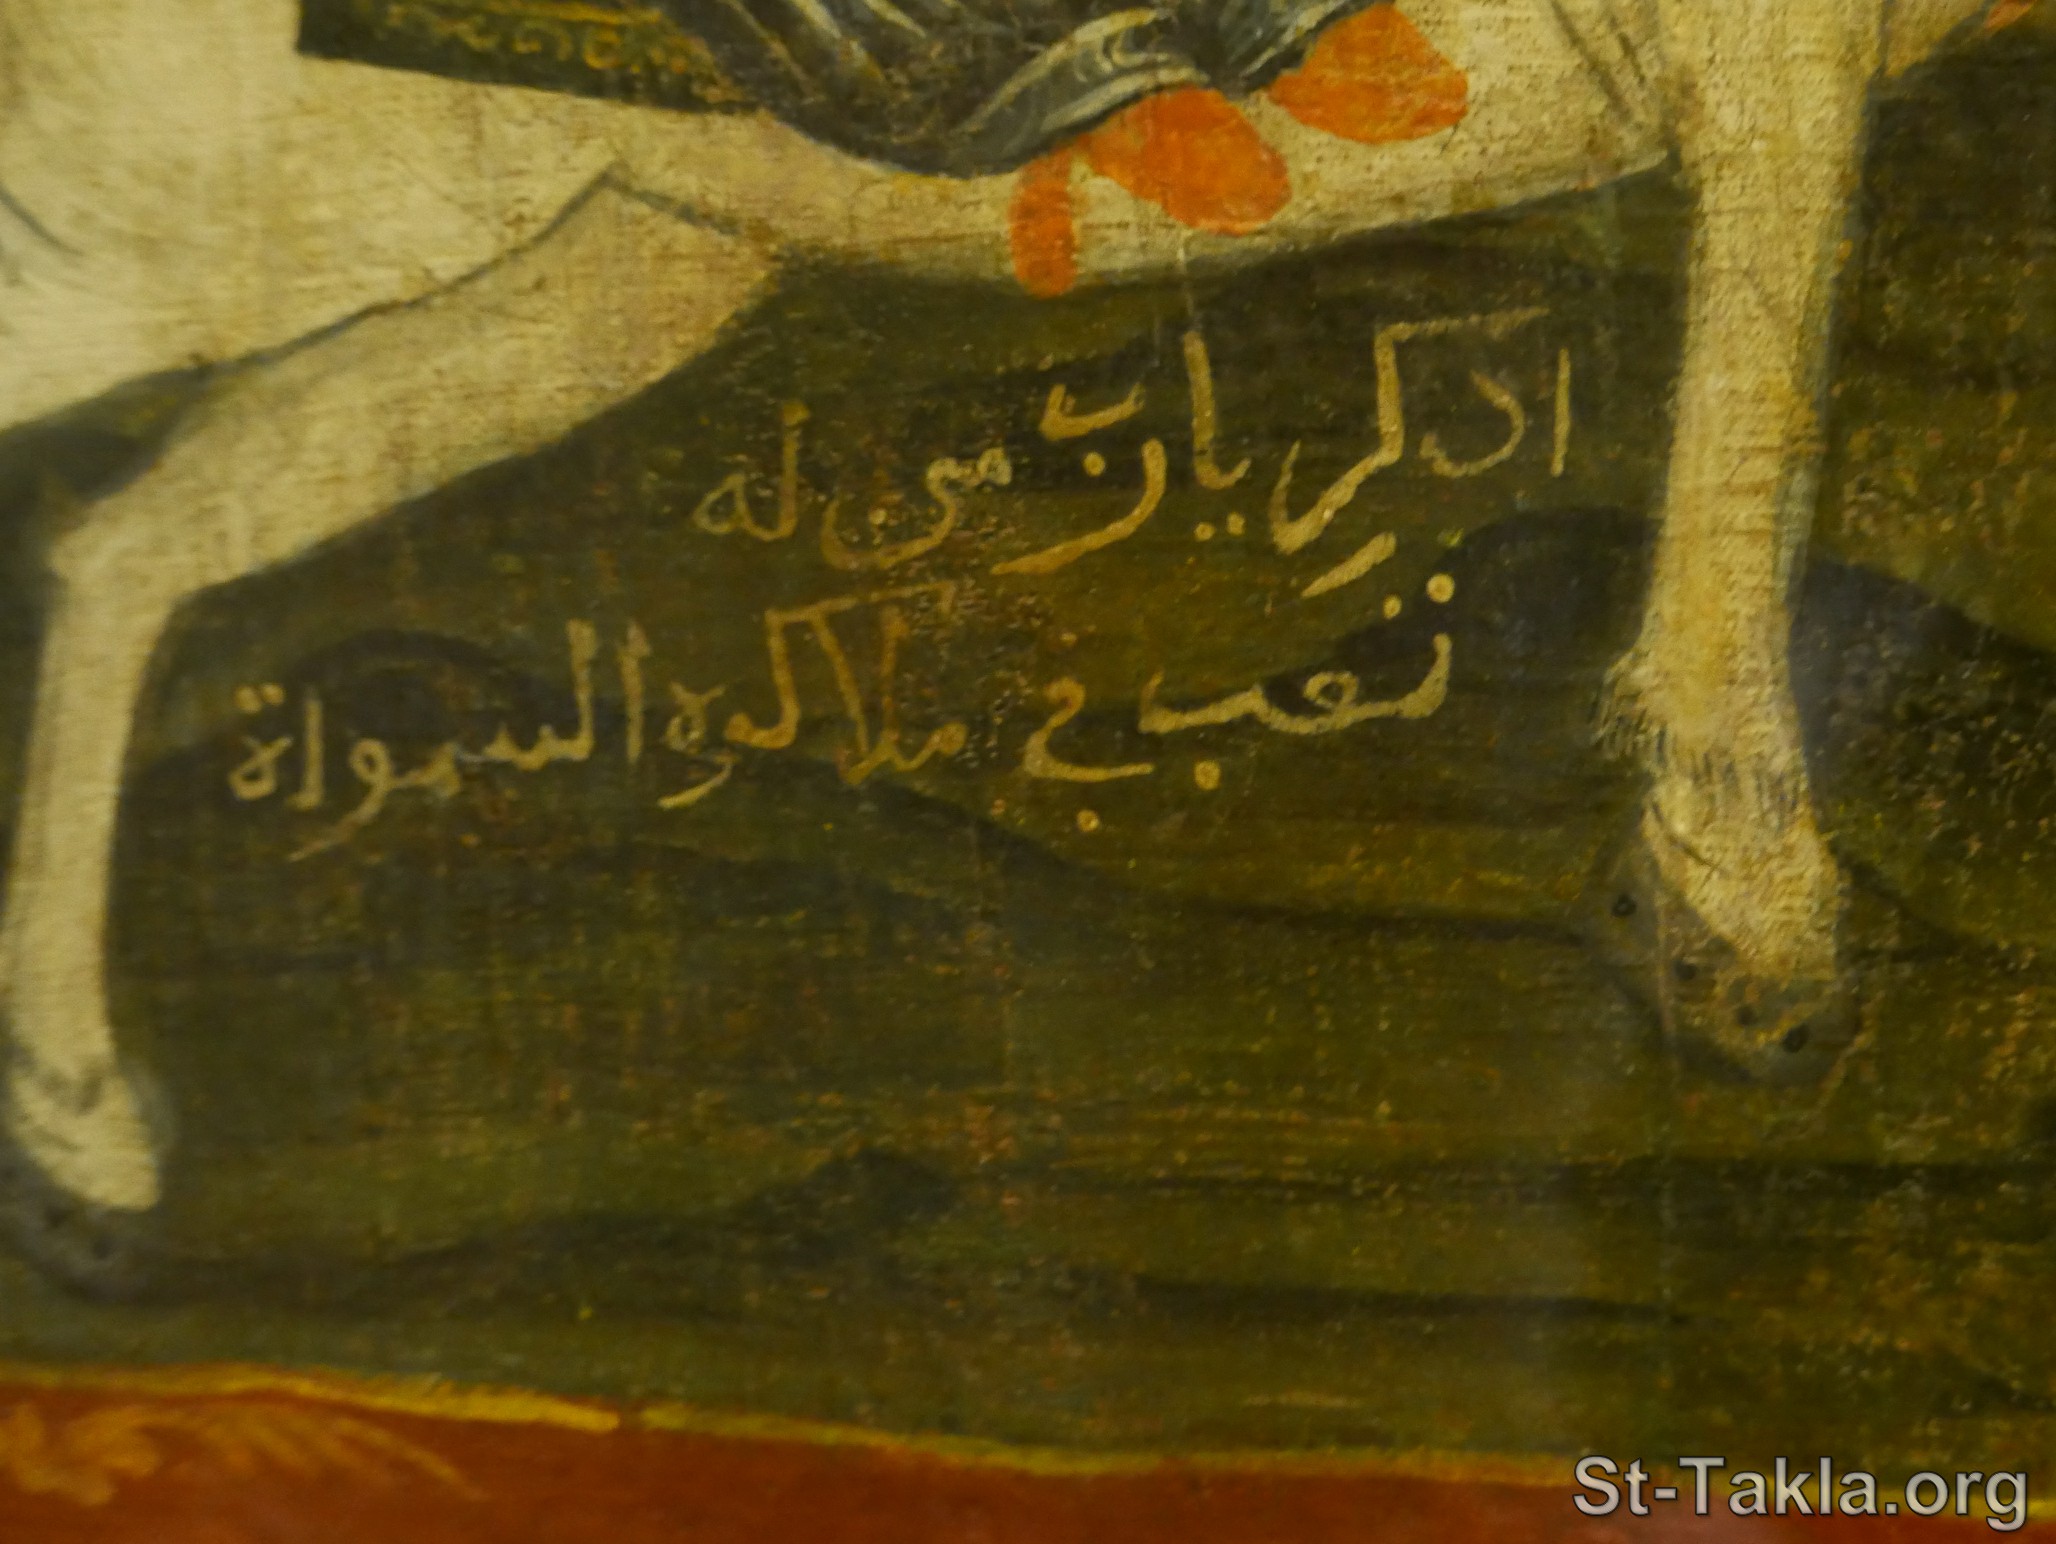 ادكر يارب من له
تعب في ملاكوة السمواة
St-Takla.org